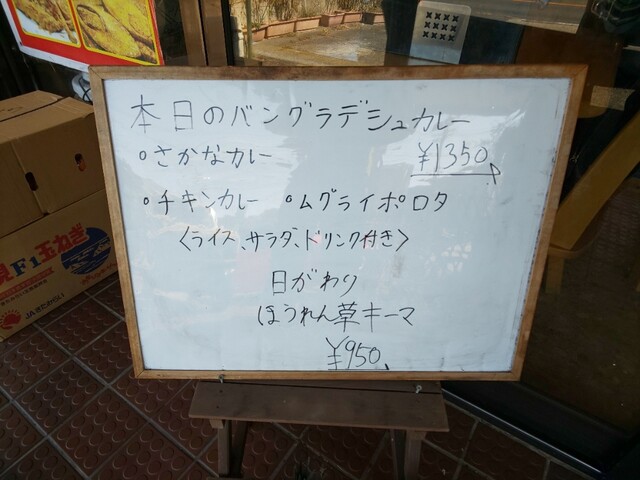 本日のバングラデシュカレー
○さかなカレー ¥1350
○チキンカレー ○ムグライポロタ
〈ライス、サラダ、ドリンク付き〉
日がわり
ほうれん草キーマ
¥950
F1玉ねぎ
JAきたみらい